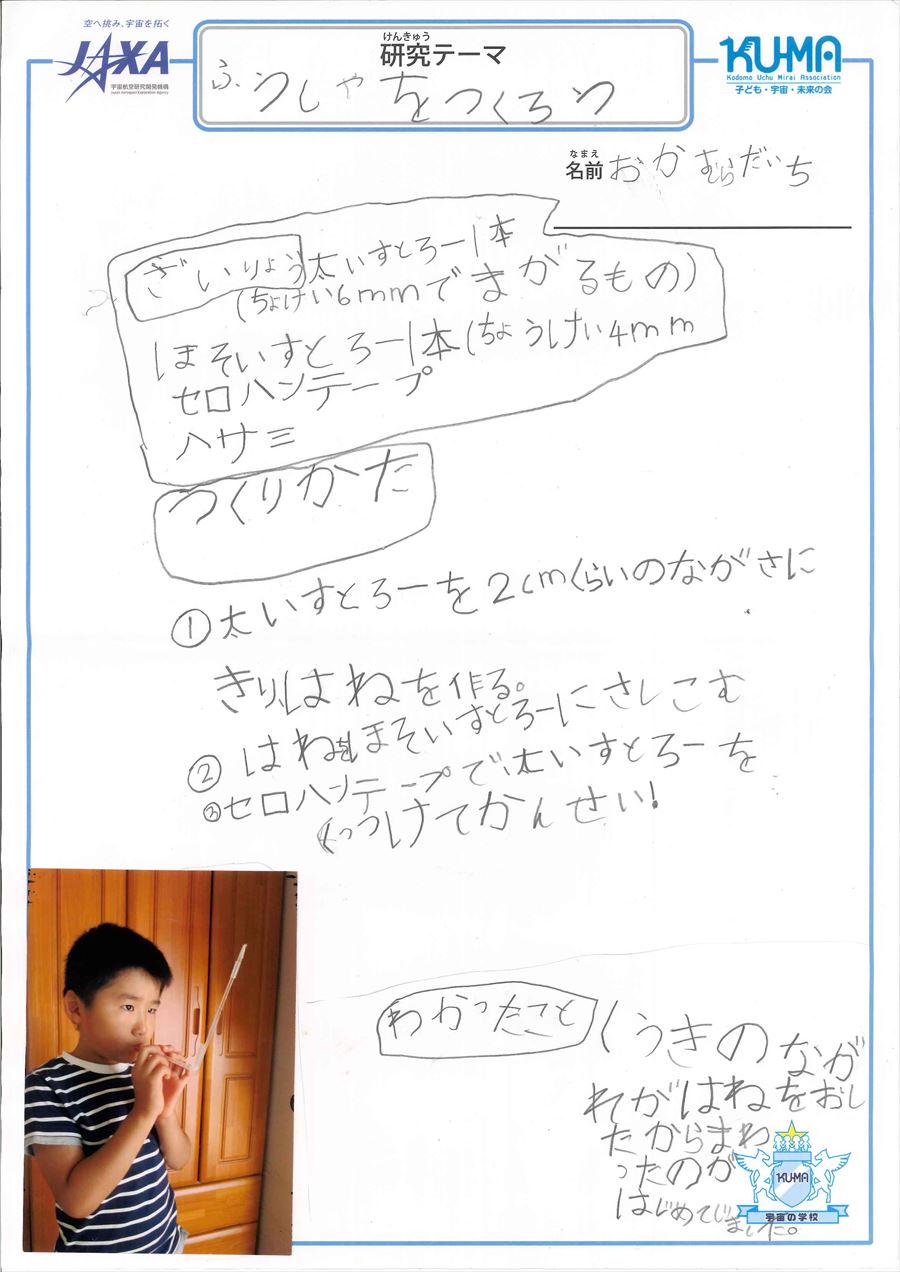 空へ挑み、宇宙を拓く
JAXA
宇宙航空研究開発機構
Japan Aerospace Exploration Agency
けんきゅう
研究テーマ
ふうしゃをつくろう
KU-MA
Kodomo Uchu Mirai Association
子ども・宇宙・未来の会
なまえ
名前 おかむらだいち
ざいりょう 太いすとろー1本
(ちょけい6mmでまがるもの)
ほそいすとろー1本(ちょうけい4mm
セロハンテープ
ハサミ
つくりかた
①太いすとろーを2cmくらいのながさに
きりはねを作る。
②はねをほそいすとろーにさしこむ
③セロハンテープで太いすとろーを
くっつけてかんせい!
わかったこと くうきのなが
れがはねをおし
たからまわ
ったのが
はじめてじ
ました。
KU-MA
宇宙の学校